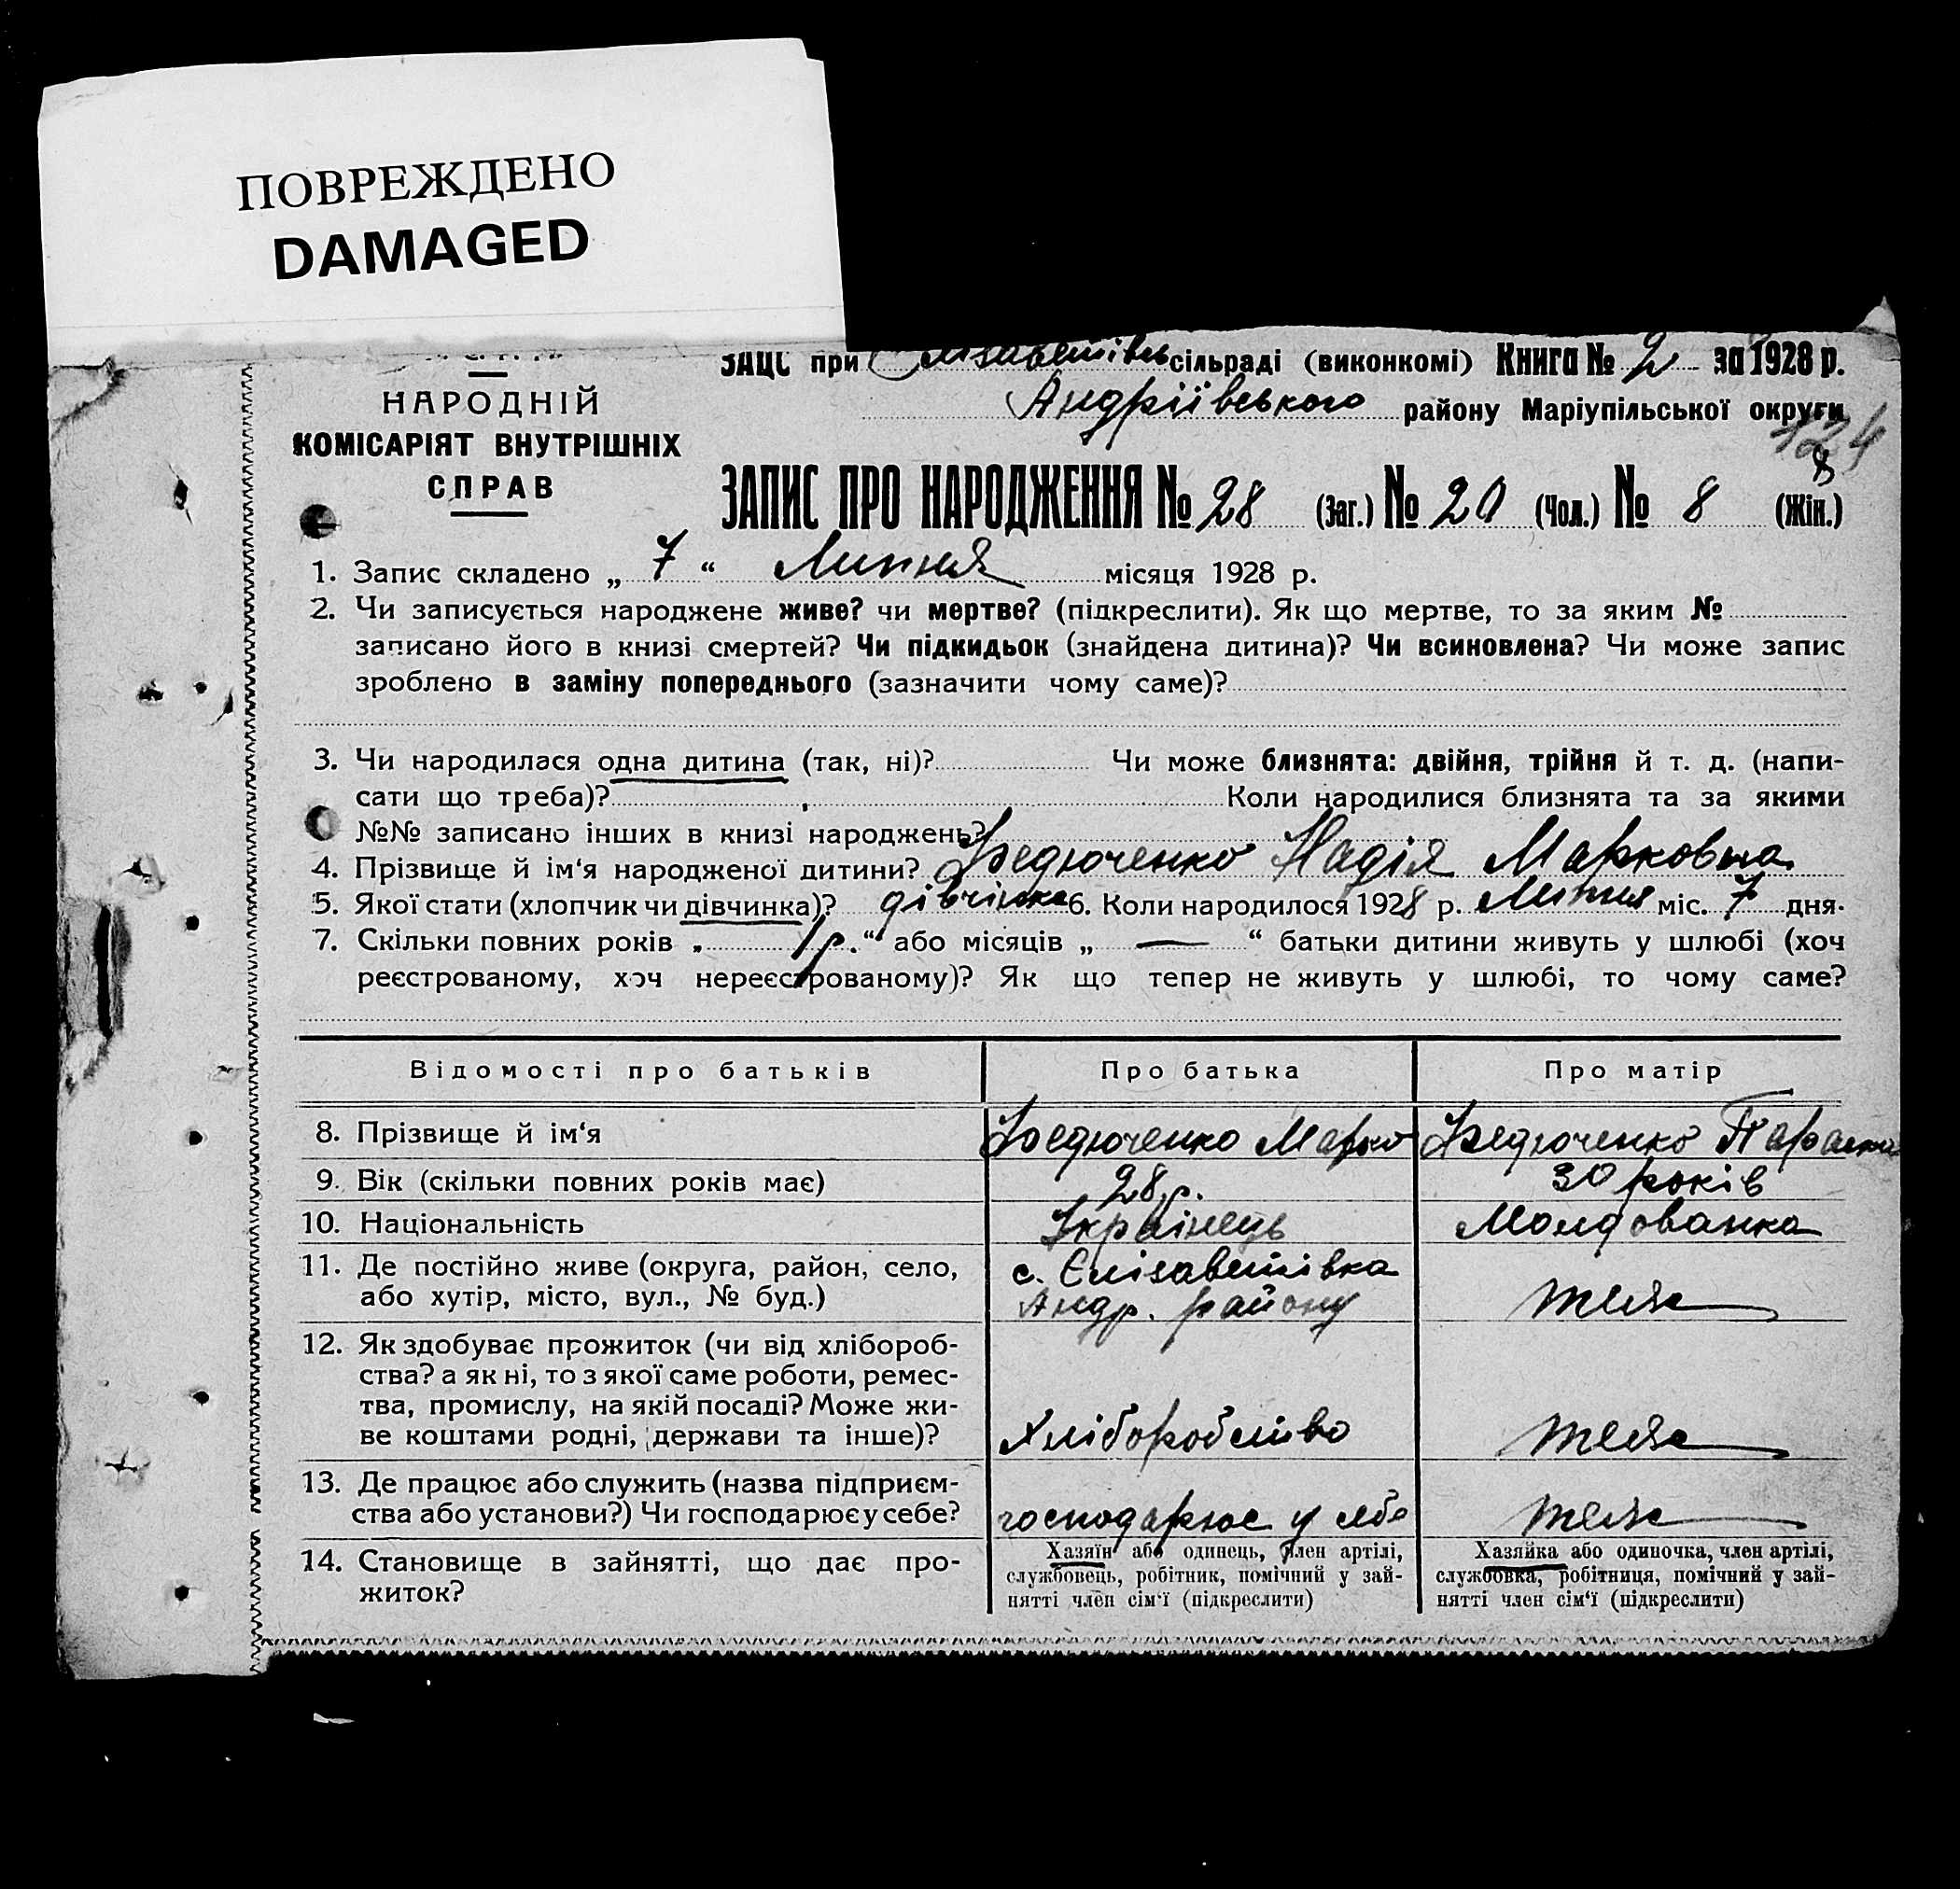 ПОВРЕЖДЕНО
DAMAGED
ЗАЦС при Єлізаветівсь сільраді (виконкомі) Книга № 2 за 1928 р.
Андріївського району Маріупільської округи
124
НАРОДНІЙ
КОМІСАРІЯТ ВНУТРІШНІХ
СПРАВ
8
ЗАПИС ПРО НАРОДЖЕННЯ № 28 (Заг.) № 20 (Чол.) № 8 (Жін.)
1. Запис складено „ 7 “ Липня місяця 1928 р.
2. Чи записується народжене живе? чи мертве? (підкреслити). Як що мертве, то за яким №
записано його в книзі смертей? Чи підкидьок (знайдена дитина)? Чи всиновлена? Чи може запис
зроблено в заміну попереднього (зазначити чому саме)?
3. Чи народилася одна дитина (так, ні)? Чи може близнята: двійня, трійня й т. д. (напи-
сати що треба)? Коли народилися близнята та за якими
№№ записано інших в книзі народжень?
4. Прізвище й ім‘я народженої дитини? Федюченко Надія Марковна
5. Якої стати (хлопчик чи дівчинка)? дівчінка 6. Коли народилося 1928 р. Липня міс. 7 дня.
7. Скільки повних років „ 1 р. “ або місяців „ — “ батьки дитини живуть у шлюбі (хоч
реєстрованому, хоч нереєстрованому)? Як що тепер не живуть у шлюбі, то чому саме?
Відомості про батьків Про батька Про матір
8. Прізвище й ім‘я Федюченко Марко Федюченко Параска
9. Вік (скільки повних років має) 28 р. 30 років
10. Національність Українець Молдованка
11. Де постійно живе (округа, район, село, с. Єлізаветівка
або хутір, місто, вул., № буд.) Андр. району теж
12. Як здобуває прожиток (чи від хлібороб-
ства? а як ні, то з якої саме роботи, ремес-
тва, промислу, на якій посаді? Може жи-
ве коштами родні, держави та інше)? Хліборобство теж
13. Де працює або служить (назва підприєм-
ства або установи?) Чи господарює у себе? господарює у себе теж
14. Становище в зайнятті, що дає про-
житок?
Хазяїн або одинець, член артілі,
службовець, робітник, помічний у зай-
нятті член сім‘ї (підкреслити)
Хазяйка або одиночка, член артілі,
службовка, робітниця, помічний у зай-
нятті член сім‘ї (підкреслити)